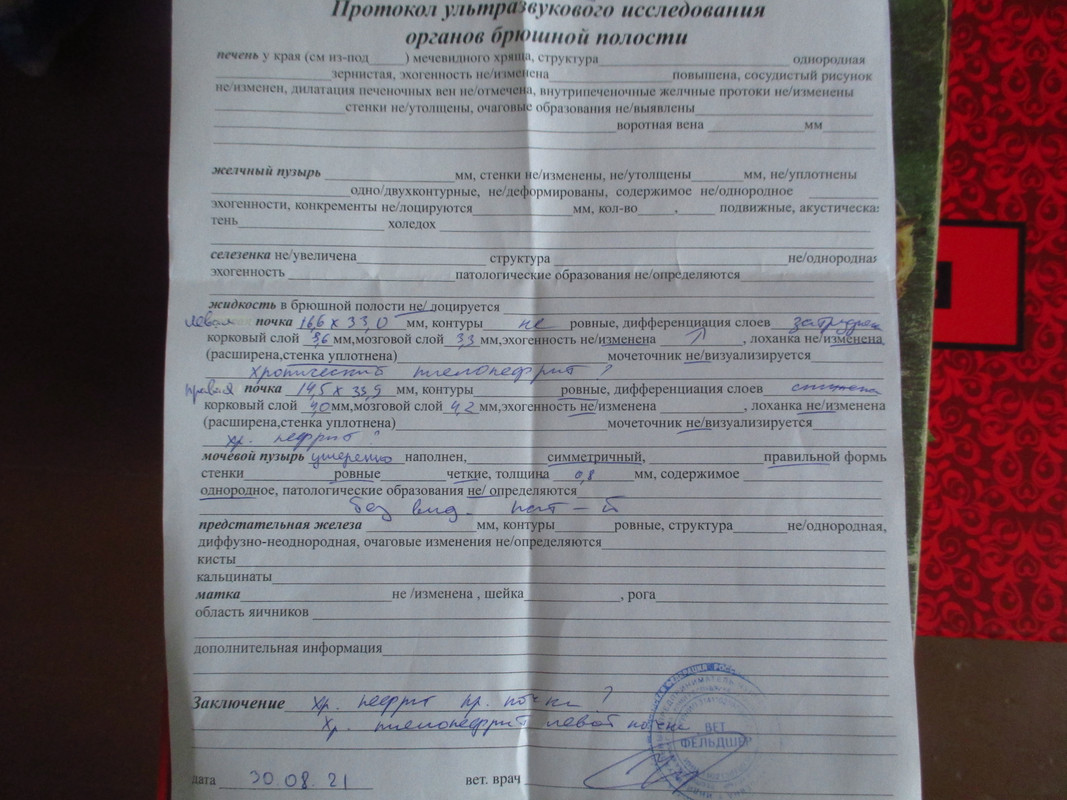 Протокол ультразвукового исследования
органов брюшной полости
печень у края (см из-под____) мечевидного хряща, структура____ однородная
____зернистая, эхогенность не/изменена____повышена, сосудистый рисунок
не/изменен, дилатация печеночных вен не/отмечена, внутрипеченочные желчные протоки не/изменены
____стенки не/утолщены, очаговые образования не/выявлены____
____воротная вена ____мм____
желчный пузырь ____мм, стенки не/изменены, не/утолщены____мм, не/уплотнены
____одно/двухконтурные, не/деформированы, содержимое не/однородное ____
эхогенности, конкременты не/лоцируются____мм, кол-во____,____ подвижные, акустическа
тень____ холедох ____
селезенка не/увеличена____ структура ____не/однородная
эхогенность ____патологические образования не/определяются____
жидкость в брюшной полости не/ лоцируется____
левая почка 16,6 х 33,0 мм, контуры не ровные, дифференциация слоев
корковый слой 3,6 мм,мозговой слой 3,3 мм,эхогенность не/изменена ↑, лоханка не/изменена
(расширена,стенка уплотнена)____ мочеточник не/визуализируется____
хронический пиелонефрит ?
правая почка 14,5 х 33,9 мм, контуры____ ровные, дифференциация слоев
корковый слой 4,0 мм,мозговой слой 4,2 мм,эхогенность не/изменена ____, лоханка не/изменена
(расширена,стенка уплотнена)____ мочеточник не/визуализируется____
хр. нефрит ?
мочевой пузырь умеренно наполнен,____ симметричный, ____правильной формы
стенки____ровные____четкие, толщина 0,8 мм, содержимое ____
однородное, патологические образования не/ определяются____
без вид. пат - й
предстательная железа ____мм, контуры ____ровные, структура____не/однородная,
диффузно-неоднородная, очаговые изменения не/определяются____
кисты____
кальцинаты____
матка____ не /изменена , шейка____, рога____
область яичников ____
дополнительная информация____
Заключение хр. нефрит пр. почки ?
хр. пиелонефрит левой почки
ВЕТ
ФЕЛЬДШЕР
дата 30.08.21 вет. врач ____